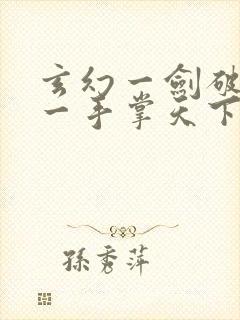 玄幻一劍破
一手掌天下
孫秀萍